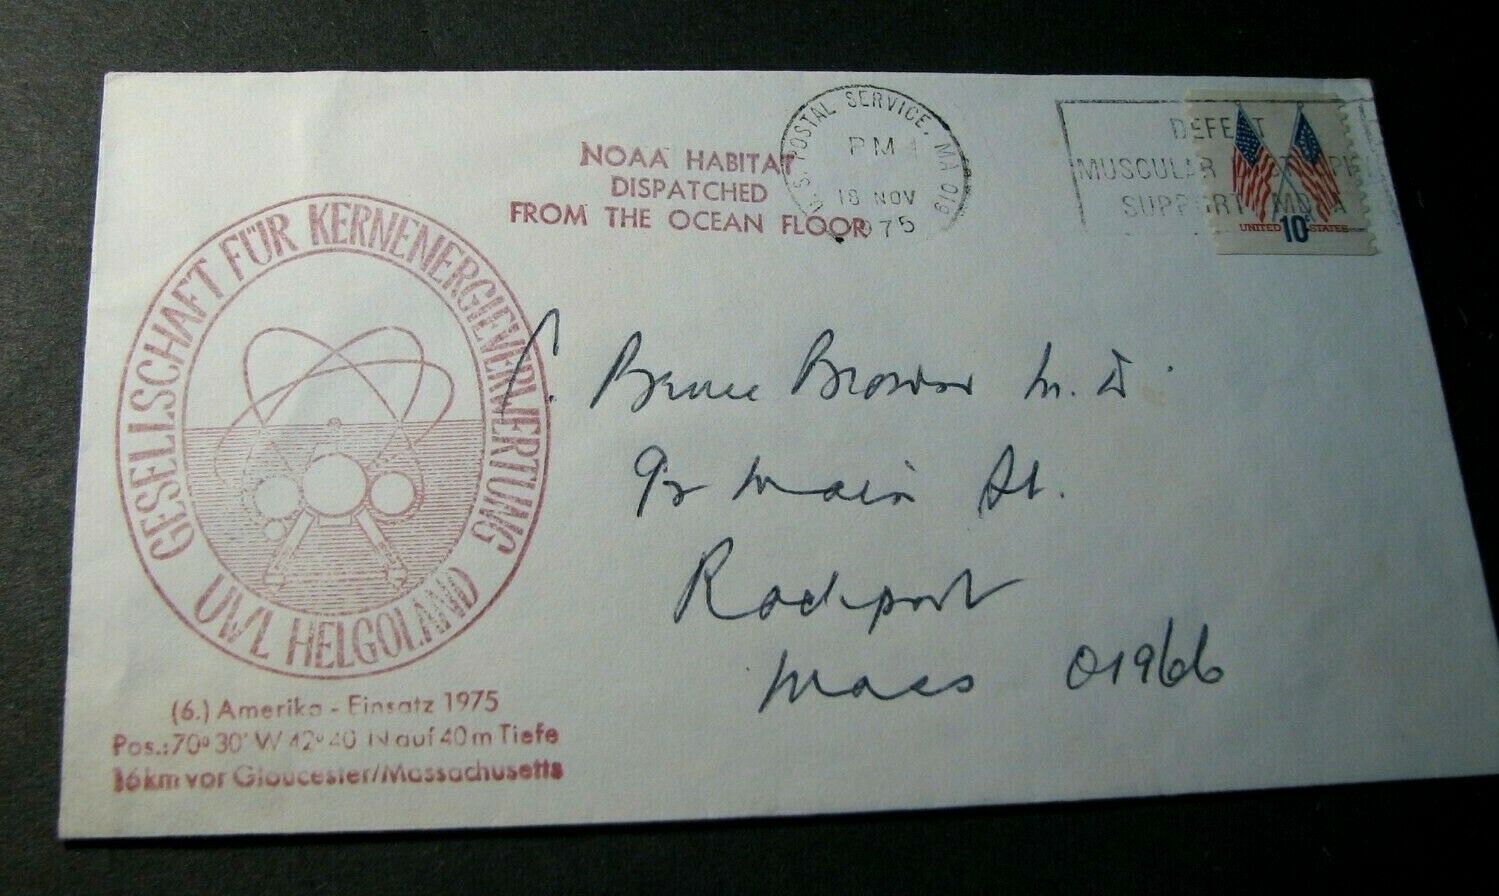 NOAA HABITAT
DISPATCHED
FROM THE OCEAN FLOOR
U.S. POSTAL SERVICE, MA 019
PM
18 NOV
1975
DEFEAT
MUSCULAR
SUPPORT MDAA
UNITED 10¢ STATES
GESELLSCHAFT FÜR KERNENERGIEVERWERTUNG
UWL HELGOLAND
(6.) Amerika - Einsatz 1975
Pos.: 70° 30' W 42° 40' N auf 40 m Tiefe
16 km vor Gloucester/Massachusetts
Bruce Brown M.D.
92 Main St.
Rockport
Mass 01966